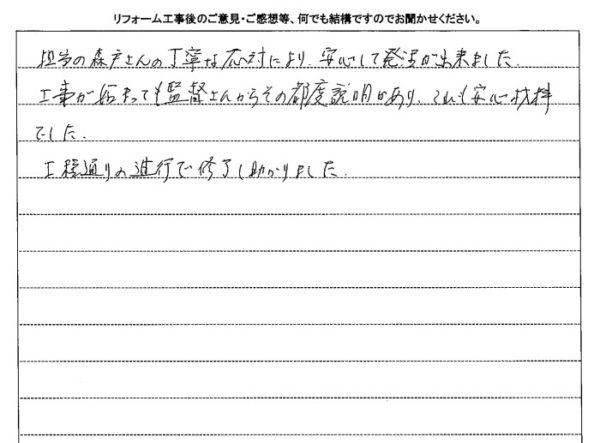 リフォーム工事後のご意見・ご感想等、何でも結構ですのでお聞かせください。
担当の森戸さんの丁寧な応対により、安心して発注が出来ました。
工事が始まっても監督さんからその都度説明があり、これも安心材料
でした。
工程通りの進行で修了し助かりました。